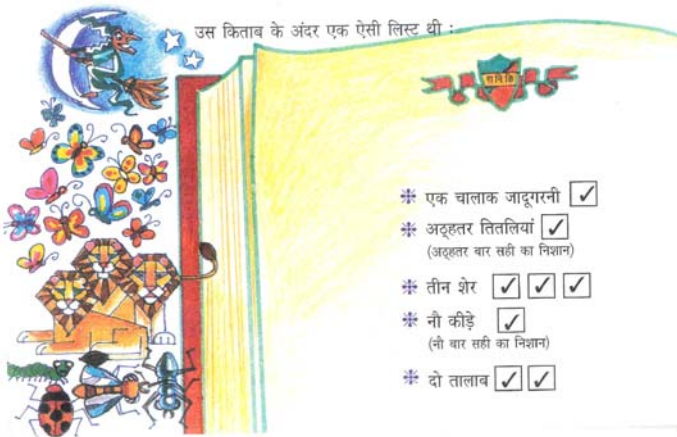 उस किताब के अंदर एक ऐसी लिस्ट थी :
रा नि कि
❉ एक चालाक जादूगरनी ✓
❉ अठ्हतर तितलियां ✓
(अठ्हतर बार सही का निशान)
❉ तीन शेर ✓ ✓ ✓
❉ नौ कीड़े ✓
(नौ बार सही का निशान)
❉ दो तालाब ✓ ✓